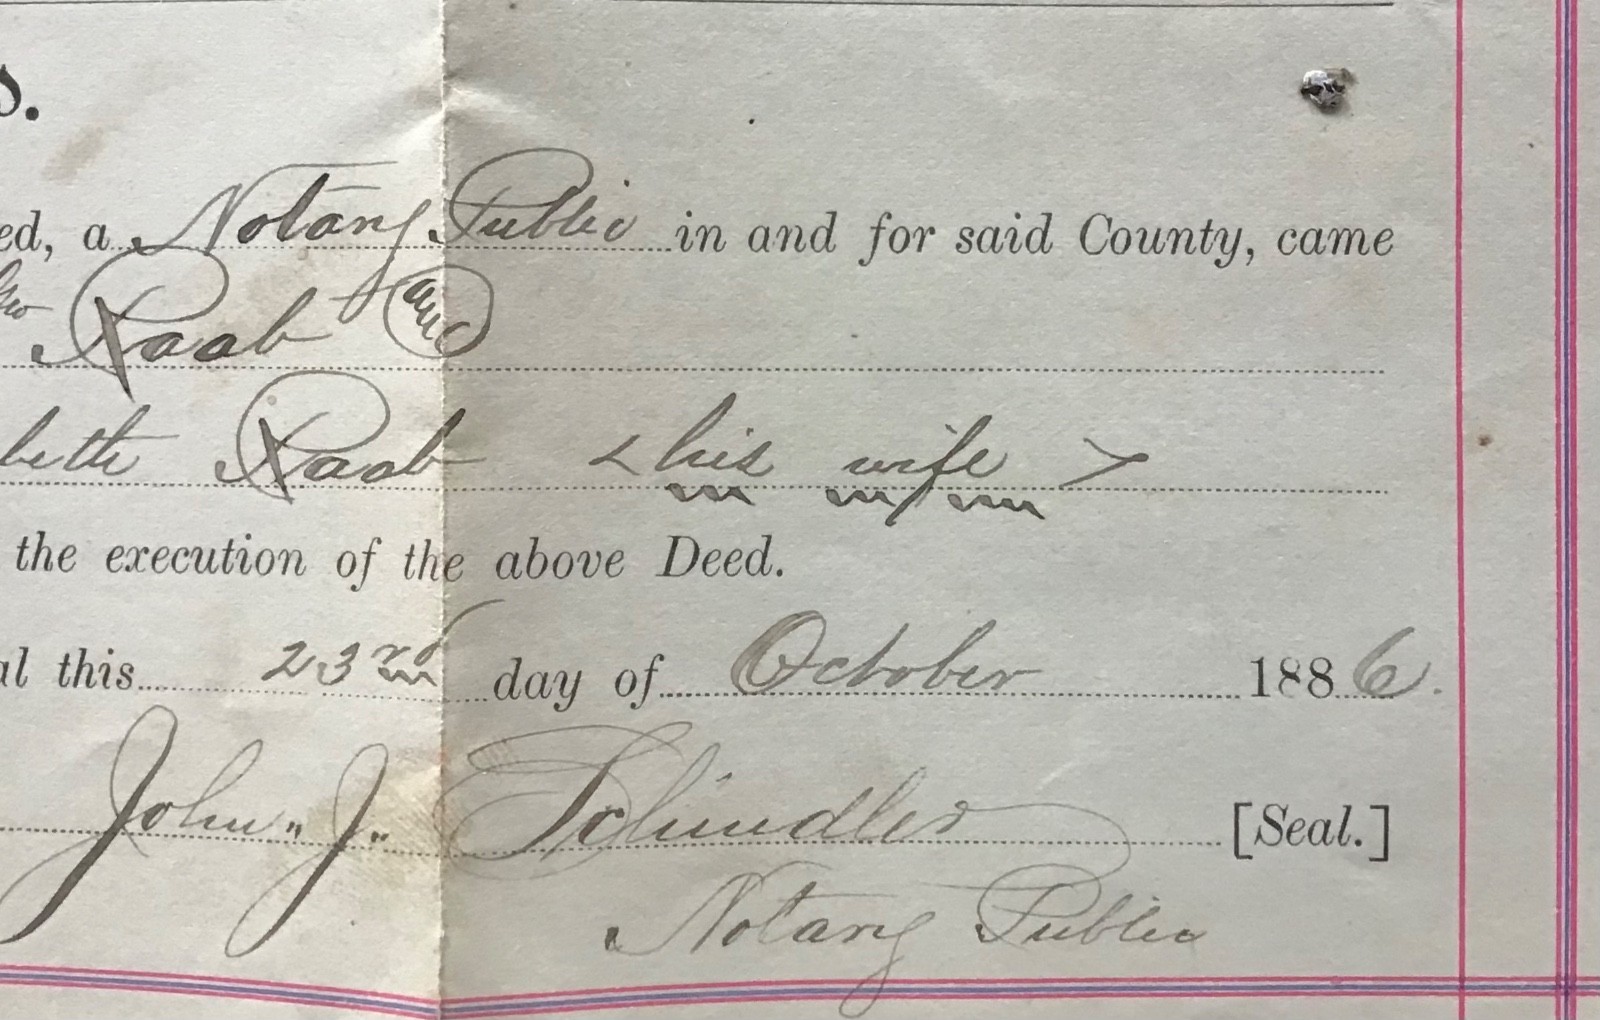 s.
ed, a Notary Public in and for said County, came
Raab and
beth Raab <his wife>
the execution of the above Deed.
al this 23rd day of October 1886.
John „ J „ Schindler [Seal.]
Notary Public